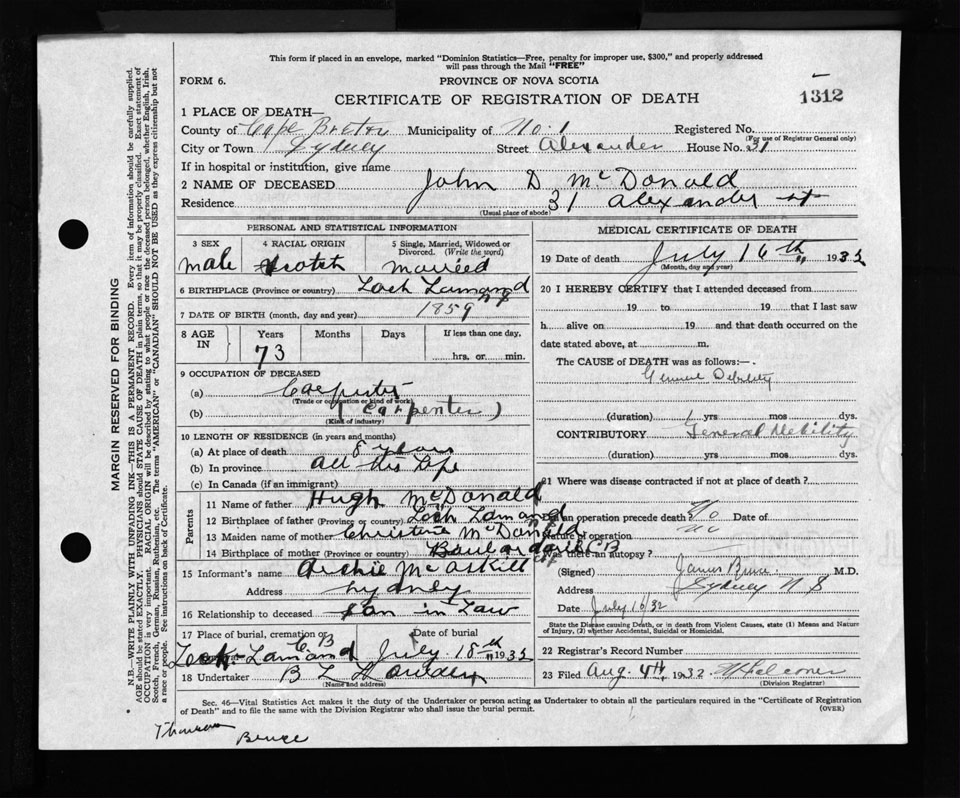 This form if placed in an envelope, marked "Dominion Statistics—Free, penalty for improper use, $300," and properly addressed
will pass through the Mail "FREE"
FORM 6.
PROVINCE OF NOVA SCOTIA
CERTIFICATE OF REGISTRATION OF DEATH
1312
1 PLACE OF DEATH—
County of Cape Breton Municipality of No. 1 Registered No.
(For use of Registrar General only)
City or Town Sydney Street Alexander House No. 31
If in hospital or institution, give name
2 NAME OF DECEASED John D McDonald
Residence 31 Alexander St
(Usual place of abode)
PERSONAL AND STATISTICAL INFORMATION
3 SEX 4 RACIAL ORIGIN 5 Single, Married, Widowed or Divorced. (Write the word)
male Scotch married
6 BIRTHPLACE (Province or country) Loch Lamand
7 DATE OF BIRTH (month, day and year) 1859
8 AGE IN Years Months Days If less than one day,
73 hrs. or min.
9 OCCUPATION OF DECEASED
(a) Carpenter
(Trade or occupation or kind of work)
(b) (Carpenter)
(Kind of industry)
10 LENGTH OF RESIDENCE (in years and months)
(a) At place of death 8 years
(b) In province all his Life
(c) In Canada (if an immigrant)
Parents
11 Name of father Hugh McDonald
12 Birthplace of father (Province or country) Loch Lamand
13 Maiden name of mother Christine McDonald
14 Birthplace of mother (Province or country) Boulardarie CB
15 Informant's name Archie McAskill
Address Sydney
16 Relationship to deceased son in Law
17 Place of burial, cremation or Date of burial
Loch Lamand CB July 18th 1932
18 Undertaker B L
(Name and address)
MEDICAL CERTIFICATE OF DEATH
19 Date of death July 16th 1932
(Month, day and year)
20 I HEREBY CERTIFY that I attended deceased from
19 to 19 that I last saw
h alive on 19 and that death occurred on the
date stated above, at m.
The CAUSE of DEATH was as follows:—
General Debility
(duration) 1 yrs mos dys.
CONTRIBUTORY General Debility
(duration) yrs mos dys.
21 Where was disease contracted if not at place of death?
Did an operation precede death? No Date of
Nature of operation
Was there an autopsy?
(Signed) James Bruce M.D.
Address Sydney N S
Date July 16/32
State the Disease causing Death, or in death from Violent Causes, state (1) Means and Nature
of Injury, (2) whether Accidental, Suicidal or Homicidal.
22 Registrar's Record Number
23 Filed Aug. 4th, 1932
(Division Registrar)
Sec. 46—Vital Statistics Act makes it the duty of the Undertaker or person acting as Undertaker to obtain all the particulars required in the "Certificate of Registration
of Death" and to file the same with the Division Registrar who shall issue the burial permit.
(OVER)
Bruce
MARGIN RESERVED FOR BINDING
N.B. WRITE PLAINLY WITH UNFADING INK—THIS IS A PERMANENT RECORD. Every item of information should be carefully supplied.
AGE should be stated EXACTLY. PHYSICIANS should STATE CAUSE OF DEATH in plain terms, so that it may be properly classified. Exact statement of
OCCUPATION is very important. RACIAL ORIGIN will be described by stating to what people or race the deceased person belonged, whether English, Irish,
Scotch, French, German, Russian, Ruthenian, etc. The terms "AMERICAN" or "CANADIAN" SHOULD NOT BE USED as they express citizenship but not
a race or people. See instructions on back of Certificate.